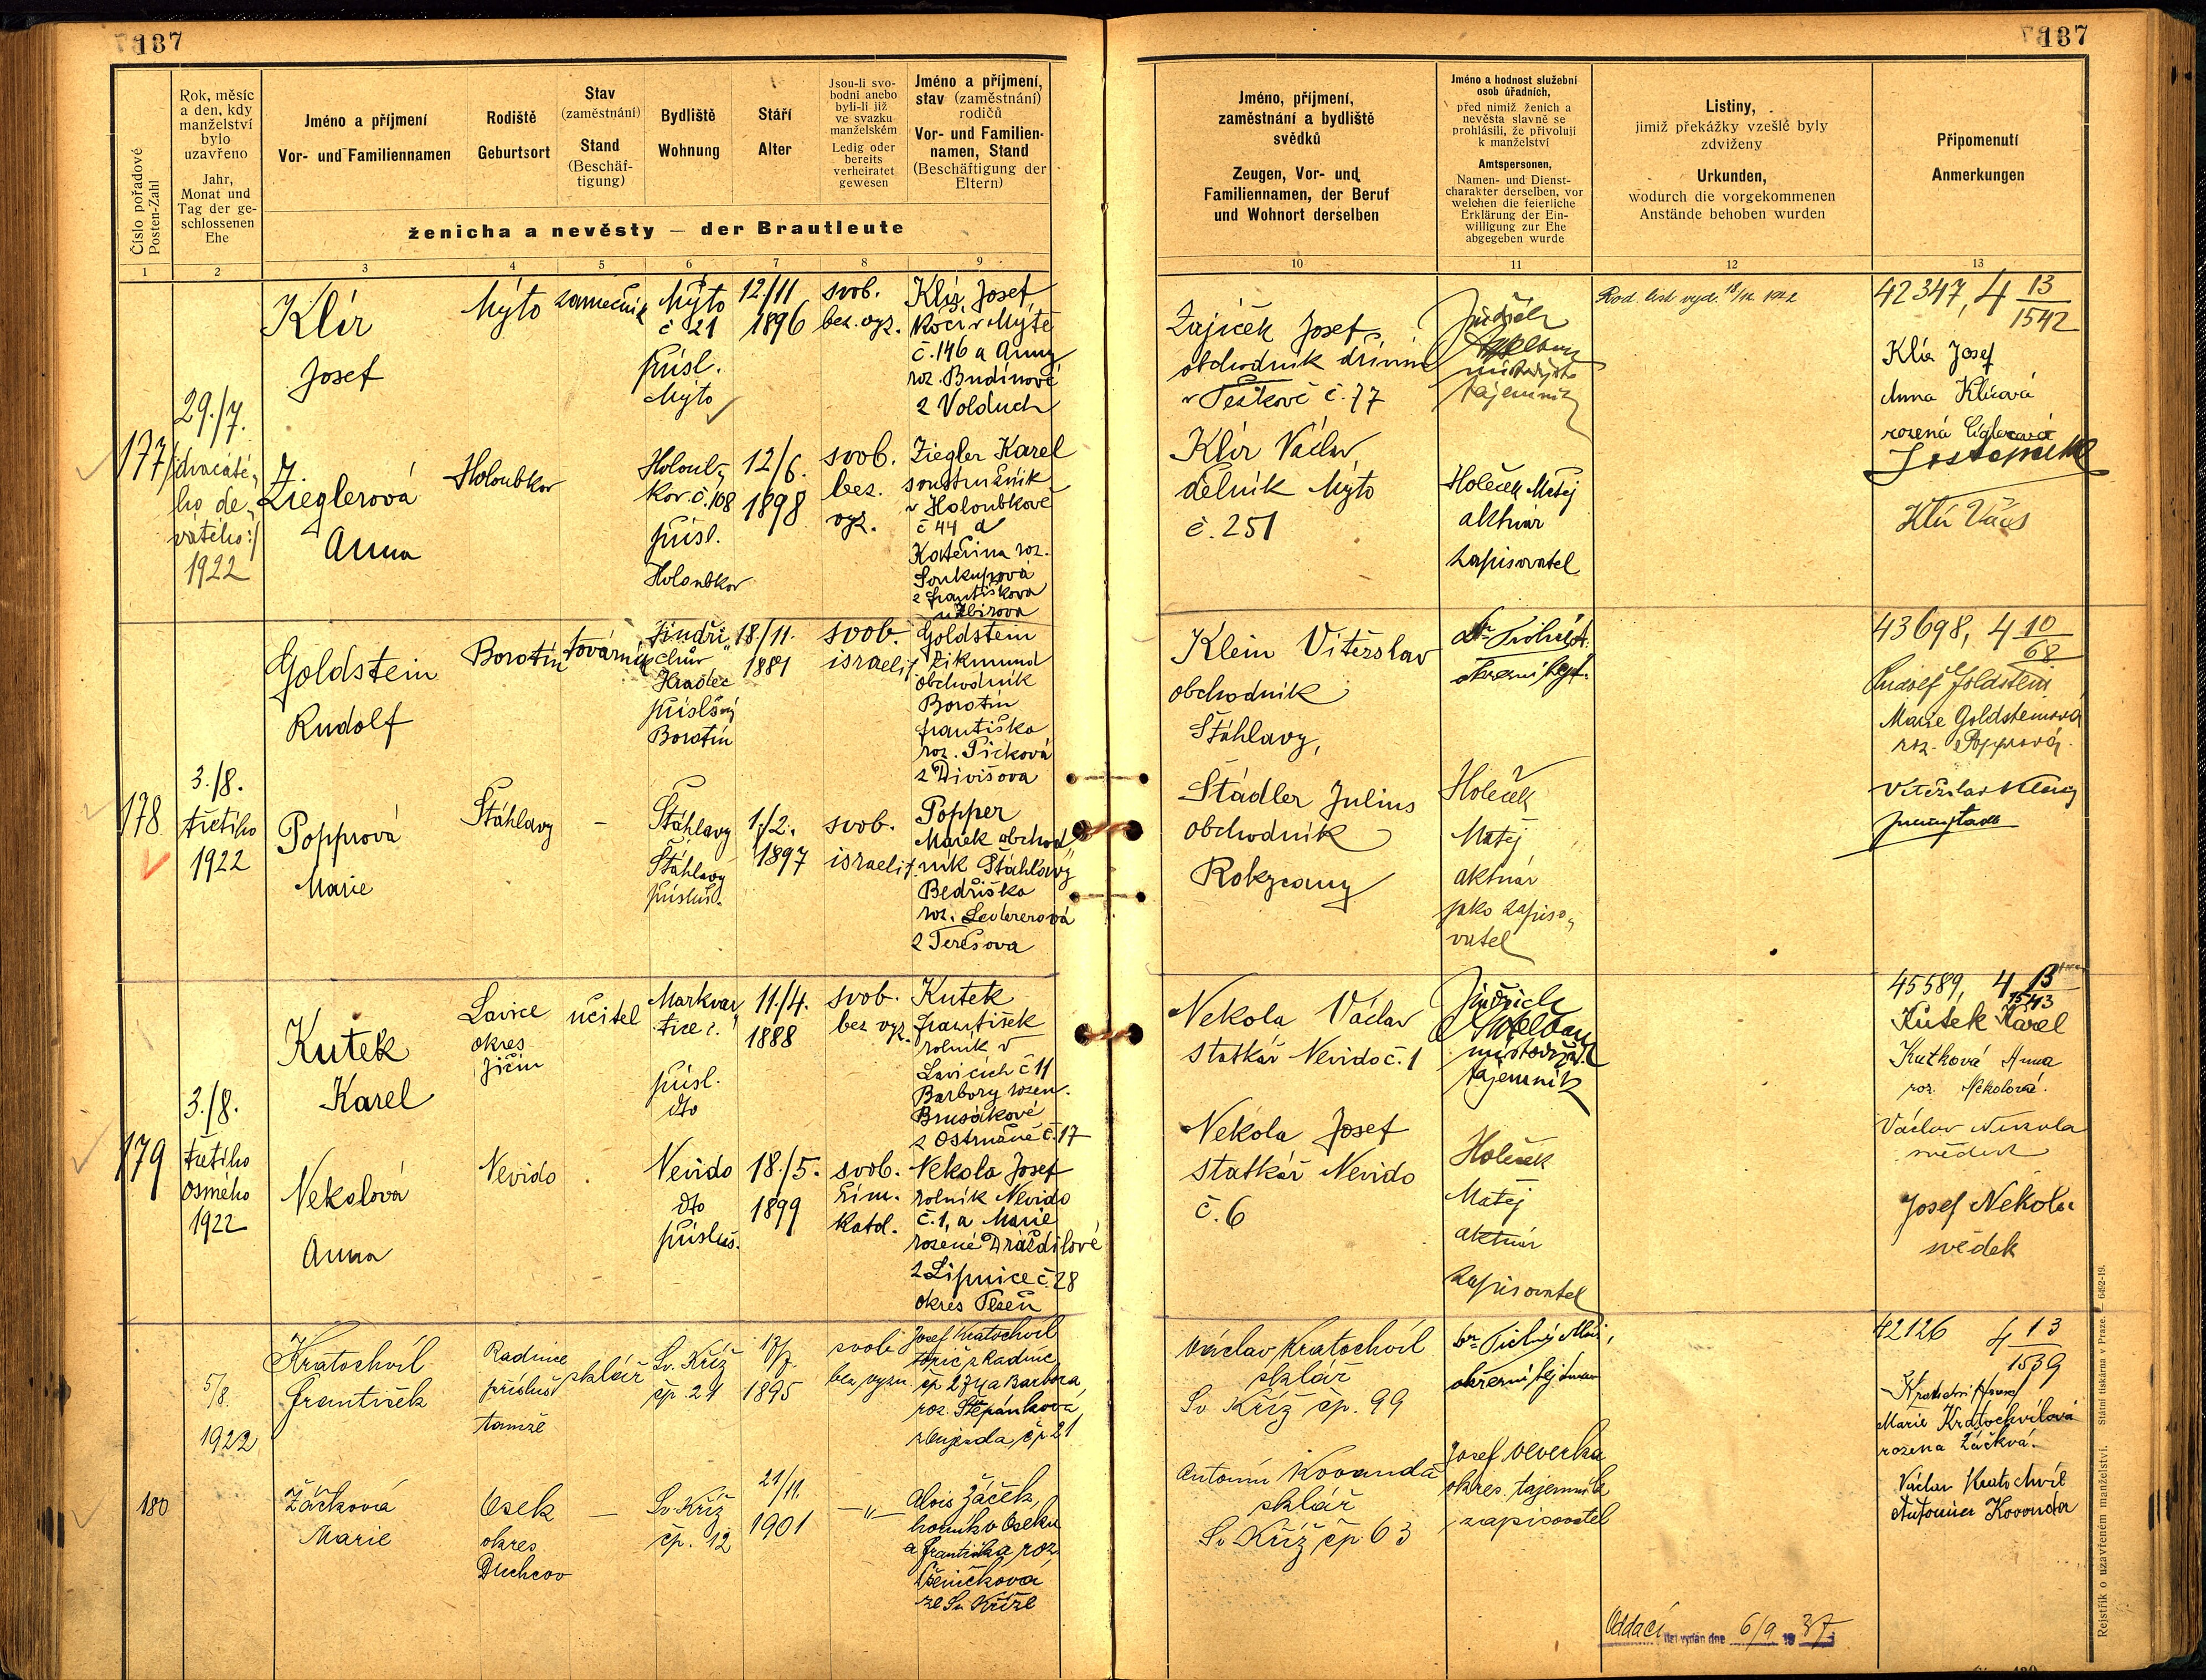 137
137
Číslo pořadové
Posten-Zahl
Rok, měsíc
a den, kdy
manželství
bylo
uzavřeno
Jahr,
Monat und
Tag der ge-
schlossenen
Ehe
Jméno a příjmení
Vor- und Familiennamen
Rodiště
Geburtsort
Stav
(zaměstnání)
Stand
(Beschäf-
tigung)
Bydliště
Wohnung
Stáří
Alter
Jsou-li svo-
bodni anebo
byli-li již
ve svazku
manželském
Ledig oder
bereits
verheiratet
gewesen
Jméno a příjmení,
stav (zaměstnání)
rodičů
Vor- und Familien-
namen, Stand
(Beschäftigung der
Eltern)
ženicha a nevěsty — der Brautleute
Jméno, příjmení,
zaměstnání a bydliště
svědků
Zeugen, Vor- und
Familiennamen, der Beruf
und Wohnort derselben
Jméno a hodnost služební
osob úřadních,
před nimiž ženich a
nevěsta slavně se
prohlásili, že přivolují
k manželství
Amtspersonen,
Namen- und Dienst-
charakter derselben, vor
welchen die feierliche
Erklärung der Ein-
willigung zur Ehe
abgegeben wurde
Listiny,
jimiž překážky vzešlé byly
zdviženy
Urkunden,
wodurch die vorgekommenen
Anstände behoben wurden
Připomenutí
Anmerkungen
1 2 3 4 5 6 7 8 9 10 11 12 13
177
29./7.
dvacaté„
ho de„
vátého:/
1922
Klír
Josef
Mýto
zámečník
Mýto
č 21
přísl.
Mýto
12./11
1896
svob.
bez. vyz.
Klír Josef,
kočí v Mýtě
č. 146 a Anny
roz. Budínové
z Volduch
Zieglerová
Anna
Holoubkov
Holoub„
kov. č. 108
přísl.
Holoubkov
12/6.
1898
svob.
bez.
vyz.
Ziegler Karel
soustružník
v Holoubkově
č 44 a
Kateřina roz.
Soukupová
z Františkova
u Zbirova
Zajíček Josef,
obchodník dřívím
v Těškově č. 77
Klír Václav
dělník Mýto
č. 251
Jindřich
místodržit.
tajemník
Holeček Matěj
aktuár
zapisovatel
Rod. list vyd. 18/12 1922
42347, 4 13/1542
Klír Josef
Anna Klírová
rozená Cíglerová
Klír Václ
178
3./8.
třetího
1922
Goldstein
Rudolf
Borotín
továrník
Jindři„
chův
Hradec
příslušný
Borotín
18./11.
1881
svob.
israelit
Goldstein
Zikmund
obchodník
Borotín
Františka
roz. Picková
z Divišova
Popprová
Marie
Štáhlavy
—
Štáhlavy
Štáhlavy
přísluš.
1./2.
1897
svob.
israelit.
Popper
Marek obchod„
ník Štáhlavy
Bedřiška
roz. Ledererová
z Terešova
Klein Vítězslav
obchodník
Štáhlavy,
Städler Julius
obchodník
Rokycany
Holeček
Matěj
aktuár
jako zapiso„
vatel
43698, 4 10/68
Rudolf Goldstein
Marie Goldsteinová
roz. Popprová.
179
3./8.
třetího
osmého
1922
Kutek
Karel
Lavice
okres
Jičín
učitel
Markvar„
tice č. 1
přísl.
dto
11./4.
1888
svob.
bez vyz.
Kutek
František
rolník v
Lavicích č 11
Barbory rozen.
Brusákové
z Ostružné č. 17
Nekolová
Anna
Nevido
Nevido
dto
přísluš.
18./5.
1899
svob.
řím.
katol.
Nekola Josef
rolník Nevido
č. 1, a Marie
rozené Dráždilové
z Lipnice č. 28
okres Plzeň
Nekola Václav
statkář Nevido č. 1
Nekola Josef
statkář Nevido
č. 6
Jindřich
místodržit.
tajemník
Holeček
Matěj
aktuár
zapisovatel
45589, 4 13/1543
Kutek Karel
Kutková Anna
roz. Nekolová.
Václav Nekola
svědek
Josef Nekola
svědek
180
5/8.
1922
Kratochvíl
František
Radnice
přísluš
tamže
sklář
Sv. Kříž
čp. 21
17/7.
1895
svob.
bez vyzn.
Josef Kratochvíl
topič z Radnic
čp 274 a Barbora
roz. Štěpánková
čp 21
Žáčková
Marie
Osek
okres
Duchcov
—
Sv. Kříž
čp. 12
21/11.
1901
—„—
Alois Žáček,
horník v Oseku
a Františka roz.
Pšeničková
ze Sv. Kříže
Václav Kratochvíl
sklář
Sv Kříž čp. 99
Antonín Kovanda
sklář
Sv Kříž čp 63
okresní hejtman
Josef Veverka
okres. tajemník
zapisovatel
42126 4 13/1539
Marie Kratochvílová
rozená Žáčková.
Václav Kratochvíl
Antonín Kovanda
Oddací list vydán dne 6/9 1937
Rejstřík o uzavřeném manželství. Státní tiskárna v Praze. — 6492-19.